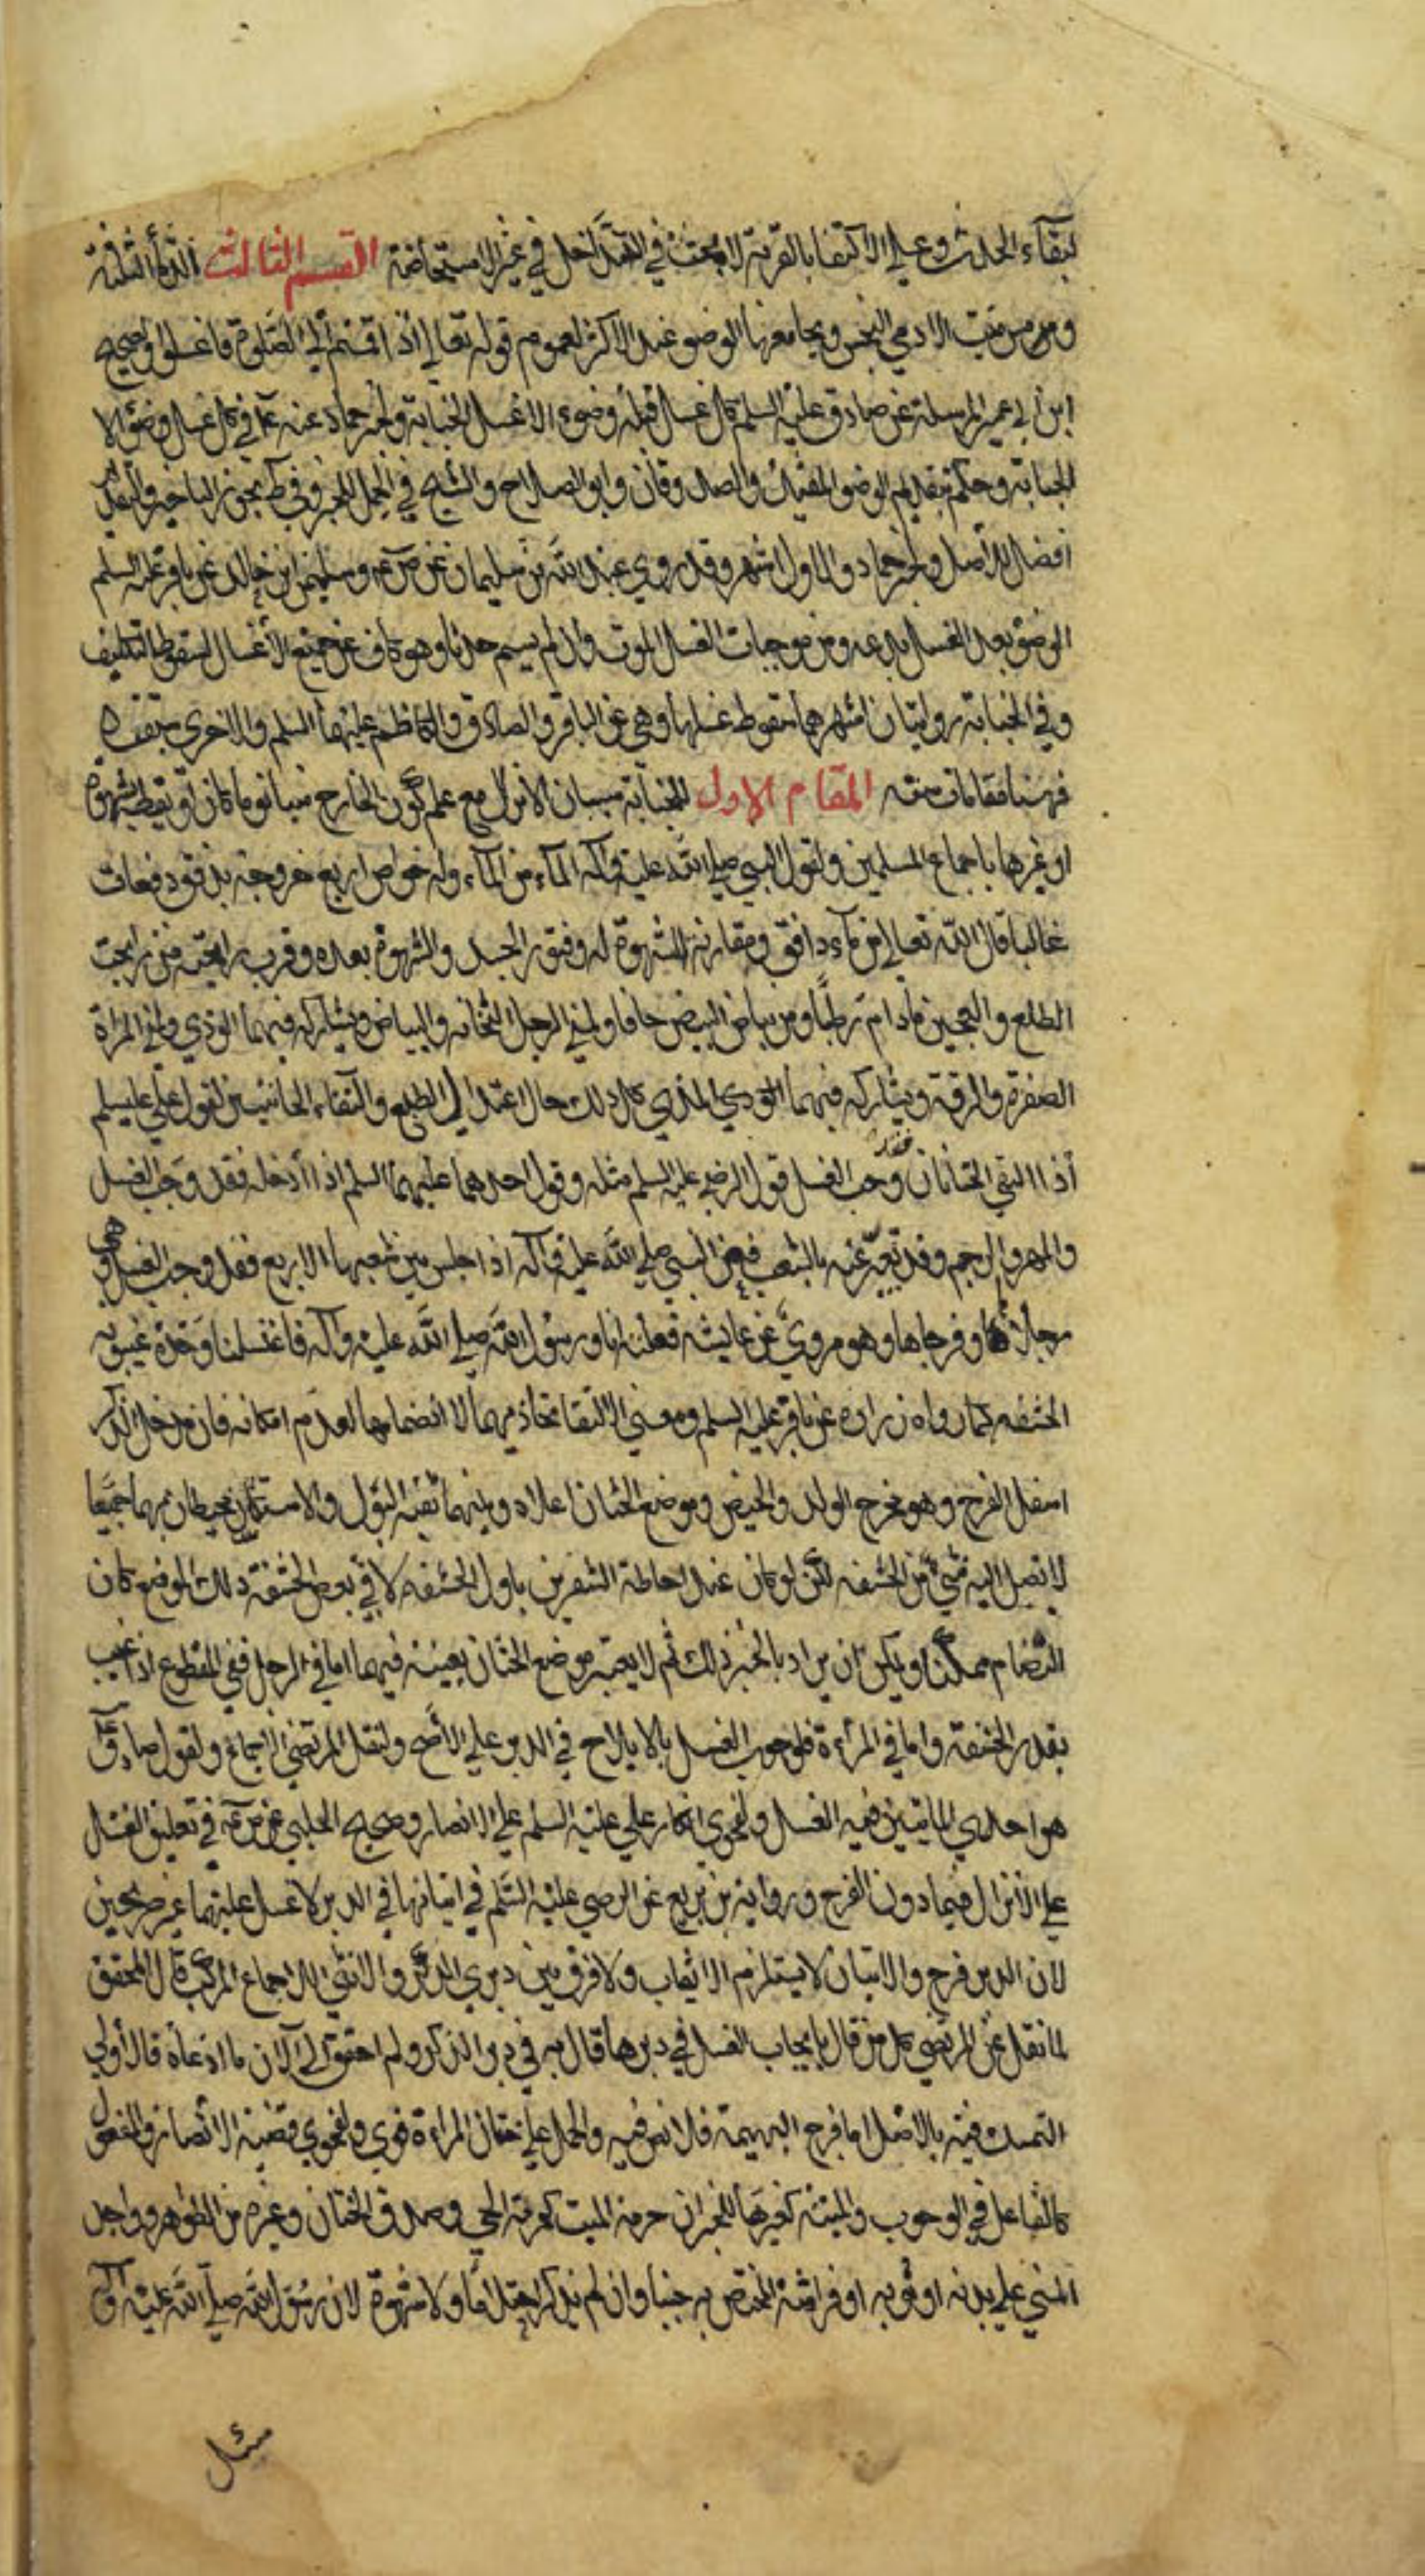 لبقاء الحدث وعلى الاكتفا بالقربة لا بحث في التداخل في غير الاستحاضة القسم الثالث الدماء الثلثة
ومس ميت الادمي النجس ويجامعها الوضو عند الاكثر لعموم قوله تعالى اذا قمتم الى الصلوة فاغسلوا وصحيح
ابن ابي عمير المرسلة عن صادق عليه السلم كل غسل قبله وضوء الا غسل الجنابة ولخبر حماد عنه ع في كل غسل وضو الا
الجنابة وحكم بتقديم الوضو المفيد والصدوقان وابو الصلاح والشيخ في الجمل للخبر وفي ط بجوز التاخير والتقديم
افضل للاصل ولخبر حماد والاول اشهر وقد روي عبد الله بن سليمان عن ص ع وسليمن ابن خالد عن باقر عليه السلم
الوضو بعد الغسل بدعه ومن موجبات الغسل الموت وان لم يسم حدثا وهو كاف عن جميع الاغسال لسقوط التكليف
وفي الجنابة روايتان اشهرهما سقوط غسلها وهي عن الباقر والصادق والكاظم عليهما السلم والاخرى
فهنا مقامات ستة المقام الاول للجنابة سببان الانزال مع علم كون الخارج منيا نوما كان او يقظة بشهوة
او غيرها باجماع المسلمين ولقول النبي صلى الله عليه واله الماء من الماء وله خواص اربع خروجه بدفق ودفعات
غالبا قال الله تعالى من ماء دافق ومقارنة الشهوة له وفتور الجسد والشهوة بعده وقرب رايحته من رايحة
الطلع والعجين ما دام رطبا ومن بياض البيض جافا ولمني الرجل الثخانة والبياض ويشاركه فيهما الوذي ولمني المراة
الصفرة والرقة ويشاركه فيهما الودي المذي كل ذلك حال اعتدال الطبع والتقاء الختانين لقول علي عليه السلم
اذا التقى الختانان فقد وجب الغسل قول الرضي عليه السلم مثله وقول احدهما عليهما السلم اذا ادخله فقد وجب الغسل
والمهر والرجم وقد تعبر عنه بالشعب فعن النبي صلى الله عليه واله اذا جلس بين شعبها الاربع فقد وجب الغسل وهي
رجلاها وفرجاها وهو مروي عن عايشه فعلته انا ورسول الله صلى الله عليه واله فاغتسلنا وحده غيبوبة
الحشفه كما رواه زرارة عن باقر عليه السلم ومعنى الالتقا تحاذيهما لا انضمامها لعدم امكانه فان مدخل الذكر
اسفل الفرج وهو مخرج الولد والحيض وموضع الختان اعلاه وبينهما ثقبة البول والاسكتان تحيطان بهما جميعا
لا تصل اليه شيء من الحشفه لكن لو كان عند احاطة الشفرين باول الحشفه لاقى بعض الحشفة ذلك الموضع كان
التضام ممكنا ويمكن ان يراد بالخبر ذلك ثم لا يعتبر موضع الختان بعينه فيهما اما في الرجل ففي المقطوع اذا غيب
بقدر الحشفة واما في المراءة فلوجوب الغسل بالايلاج في الدبر على الاصح ولنقل المرتضى الاجماع ولقول صادق ع
هو احدى الماتيين فيه الغسل ولفحوى انكار علي عليه السلم على الانصار وصحيح الحلبي عن ص ع في تعليق الغسل
على الانزال فيما دون الفرج ورواية بن بزيع عن الرضي عليه السلم في اتيانها في الدبر لا غسل عليهما غير صريحين
لان الدبر فرج والاتيان لا يستلزم الايعاب ولا فرق بين دبري الذكر والانثى للاجماع المركب قال المحقق
لما نقل عن المرتضى كل من قال بايجاب الغسل في دبرها قال به في دبر الذكر ولم احقق الى الآن ما ادعاه فالاولى
التمسك فيه بالاصل اما فرج البهيمة فلا نص فيه والحمل على ختان المراءة قوي ولفحوى قضية الانصار والمفعول
كالفاعل في الوجوب والميتة كغيرها للخبر ان حرمة الميت كحرمة الحي وصدق الختان وغيره من الظواهر وواجد
المني على بدنه او ثوبه او فراشه المختص به جنبا وان لم يذكر احتلاما ولا شهوة لان رسول الله صلى الله عليه واله
سئل